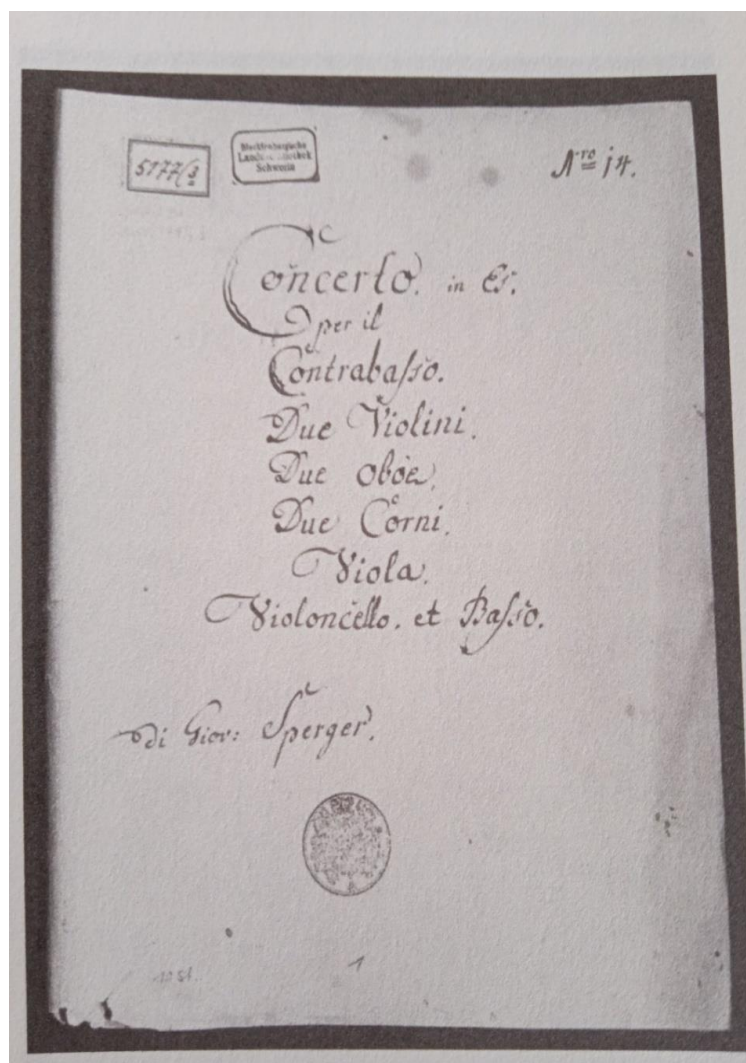 5177/3
Mecklenburgische
Landesbibliothek
Schwerin
Nro 14.
Concerto. in Es.
per il
Contrabaſso.
Due Violini.
Due Oboe.
Due Corni.
Viola.
Violoncello. et Baſso.
di Giov: Sperger.
1